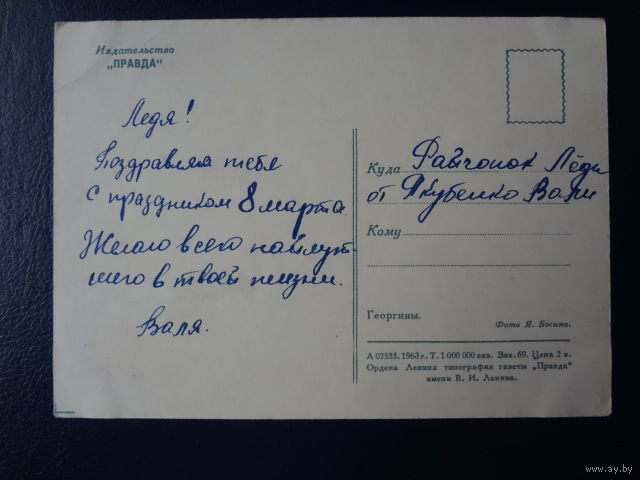 Издательство
„ПРАВДА"
Ледя!
Поздравляю тебя
с праздником 8 марта.
Желаю всего наилут-
шего в твоей жизни.
Валя.
Куда Файчонок Лёди
от Якубенко Вали
Кому
Георгины.
Фото Я. Босина.
А 02535. 1963 г. Т. 1 000 000 экз. Зак. 69. Цена 2 к.
Ордена Ленина типография газеты „Правда"
имени В. И. Ленина.
www.ay.by